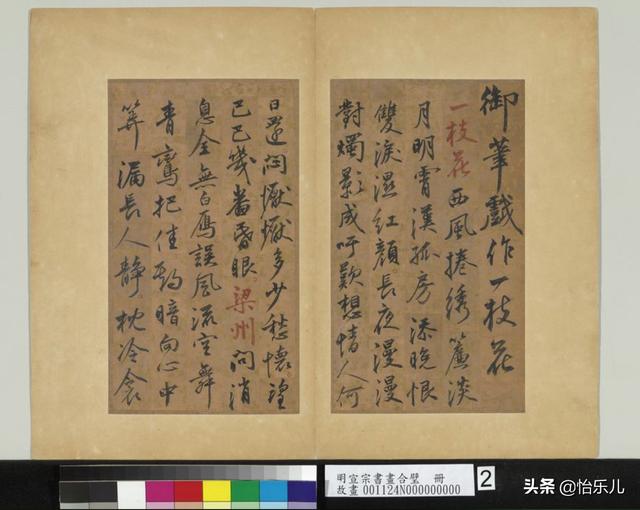 御筆戲作一枝花
一枝花西風捲綉簾淡
月明霄漢孤房添晚恨
雙淚濕紅顏長夜漫漫
對燭影成吁歎想情人何
日還悶懨懨多少愁懷望
巴巴幾番昏眼梁州問消
息全無白鴈誤風流空舞
青鸞把佳期暗向心中
筭漏長人靜枕冷衾
明宣宗書畫合璧 冊
故畫001124N000000000
2
头条 @怡乐儿